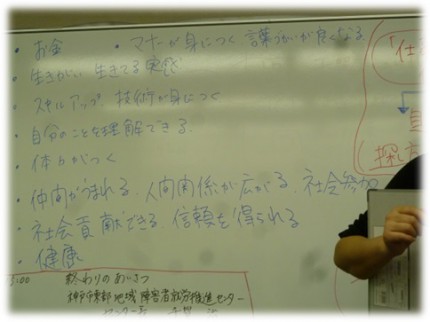 ・お金　・マナーが身につく 言葉づかいが良くなる
・生きがい 生きてる実感
・スキルアップ 技術が身につく
・自分のことを理解できる
・体力がつく
・仲間がうまれる、人間関係が広がる、社会参加
・社会貢献できる 信頼を得られる
・健康
「仕
探
:00 終わりのあいさつ
神戸東部地域障害者就労推進センター
センター長